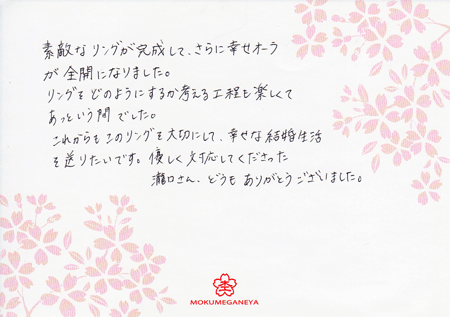 素敵なリングが完成して、さらに幸せオーラ
が全開になりました。
リングをどのようにするか考える工程も楽しくて
あっという間でした。
これからもこのリングを大切にして、幸せな結婚生活
を送りたいです。優しく対応してくださった
瀧口さん、どうもありがとうございました。
MOKUMEGANEYA